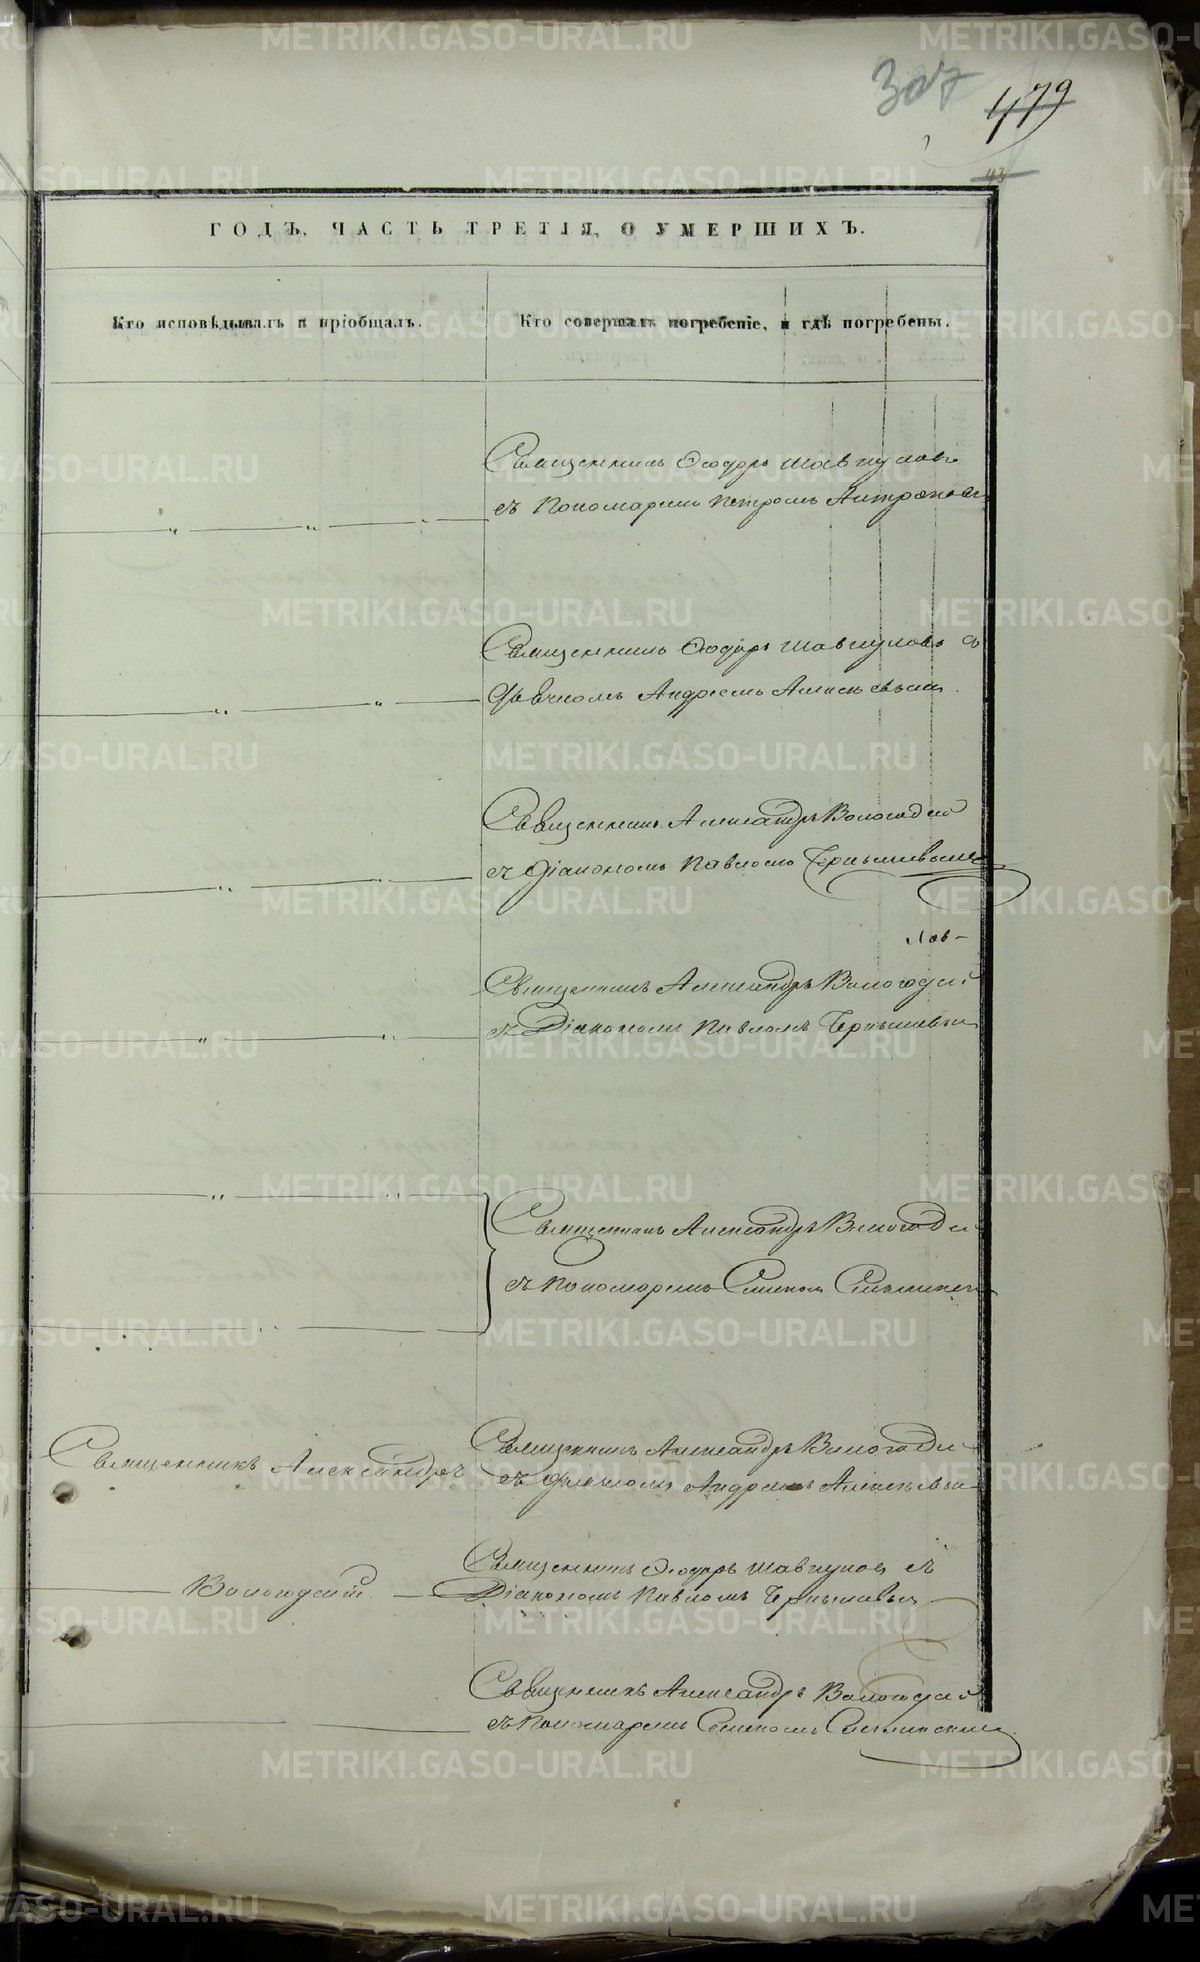 307
479
43
ГОДЪ, ЧАСТЬ ТРЕТІЯ, О УМЕРШИХЪ.
Кто исповѣдывалъ и пріобщалъ.
Кто совершалъ погребеніе, и гдѣ погребены.
Священникъ Ѳеодоръ Шавкуновъ
съ Пономаремъ Петромъ
Священникъ Ѳеодоръ Шавкуновъ съ
Дьячкомъ Андреемъ Алексѣевым
Священникъ Александръ Вологодскій
съ Діакономъ Павломъ Чернышевымъ
Священникъ Александръ Вологодскій
съ Діакономъ Павломъ Чернышевым
Священникъ Александръ Вологодскі
съ Пономаремъ Семеном
Священникъ Александръ
Священникъ Александръ Вологодскі
съ Дьячкомъ Андреемъ Алексѣевым
Вологодскій
Священникъ Ѳеодоръ Шавкуновъ съ
Діакономъ Павломъ Чернышевым
Священникъ Александръ Вологодскій
съ Пономаремъ Семеномъ
METRIKI.GASO-URAL.RU